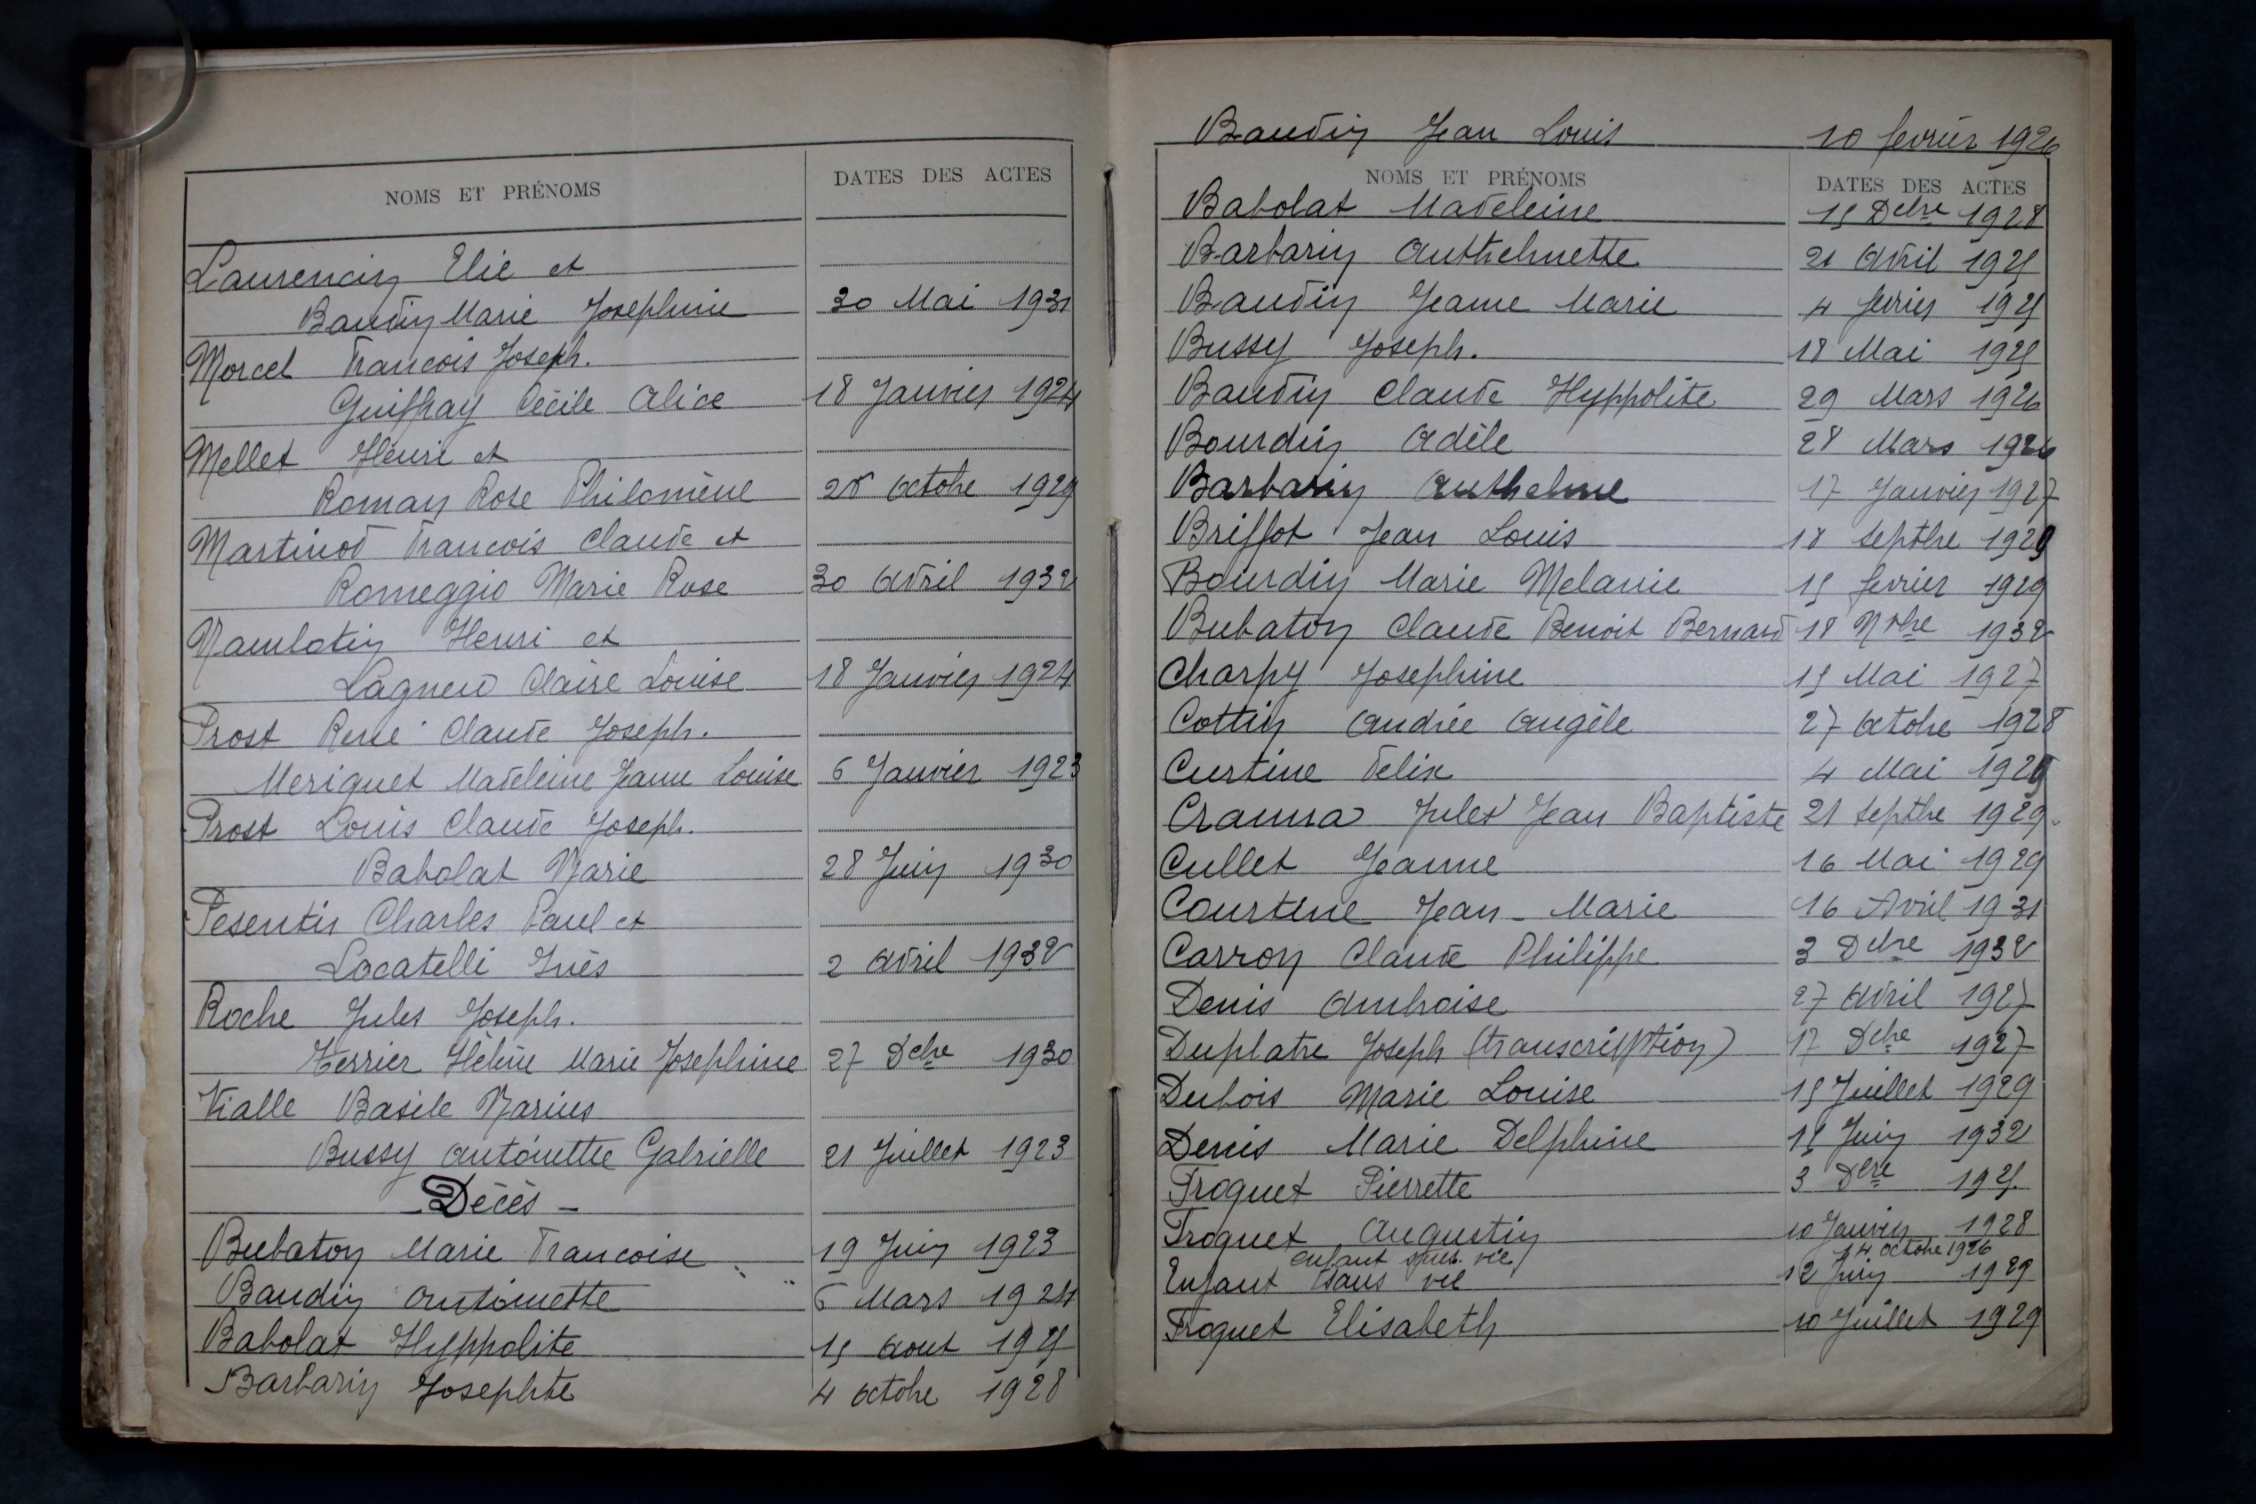 NOMS ET PRÉNOMS DATES DES ACTES
Laurencin Elie et
Baudin Marie Josephine 30 Mai 1931
Morcel Francois Joseph.
Guiffray Cécile Alice 18 Janvier 1924
Mellet Henri et
Roman Rose Philomène 28 octobre 1929
Martinod Francois Claude et
Romeggio Marie Rose 30 Avril 1932
Nambotin Henri et
Lagneu Claire Louise 18 Janvier 1924
Prost René Claude Joseph.
Meriguet Madeleine Jeanne Louise 6 Janvier 1923
Prost Louis Claude Joseph.
Babolat Marie 28 Juin 1930
Pesentis Charles Paul et
Locatelli Inès 2 Avril 1932
Roche Jules Joseph.
Terrier Hélène Marie Josephine 27 Dcbre 1930
Vialle Basile Marius
Bussy Antoinette Gabrielle 21 Juillet 1923
Décès -
Bubaton Marie Francoise 19 Juin 1923
Baudin Antoinette 6 Mars 1924
Babolat Hyppolite 15 Aout 1925
Barbarin Josephte 4 octobre 1928
Baudin Jean Louis 10 fevrier 1926
NOMS ET PRÉNOMS DATES DES ACTES
Babolat Madeleine 15 Dcbre 1928
Barbarin Anthelmette 21 Avril 1925
Baudin Jeanne Marie 4 fevrier 1925
Bussy Joseph. 18 Mai 1925
Baudin Claude Hyppolite 29 Mars 1926
Bourdin Adèle 28 Mars 1926
Barbarin Anthelme 17 Janvier 1927
Briffot Jean Louis 18 Septbre 1929
Bourdin Marie Melanie 15 fevrier 1929
Bubaton Claude Benoit Bernard 18 Nbre 1932
Charpy Josephine 15 Mai 1927
Cottin Andrée Angèle 27 octobre 1928
Curtine Felix 4 Mai 1929
Cramra Jules Jean Baptiste 21 Septbre 1929
Cullet Jeanne 16 Mai 1929
Courtine Jean-Marie 16 Avril 1931
Carron Claude Philippe 3 Dcbre 1932
Denis Ambroise 27 Avril 1927
Duplatre Joseph (transcription) 17 Dcbre 1927
Dubois Marie Louise 15 Juillet 1929
Denis Marie Delphine 15 Juin 1932
Froquet Pierrette 3 Dbre 1925
Froquet Augustin 10 Janvier 1928
enfant sans vie 14 octobre 1926
Enfant sans vie 12 Juin 1929
Froquet Elisabeth 10 Juillet 1929